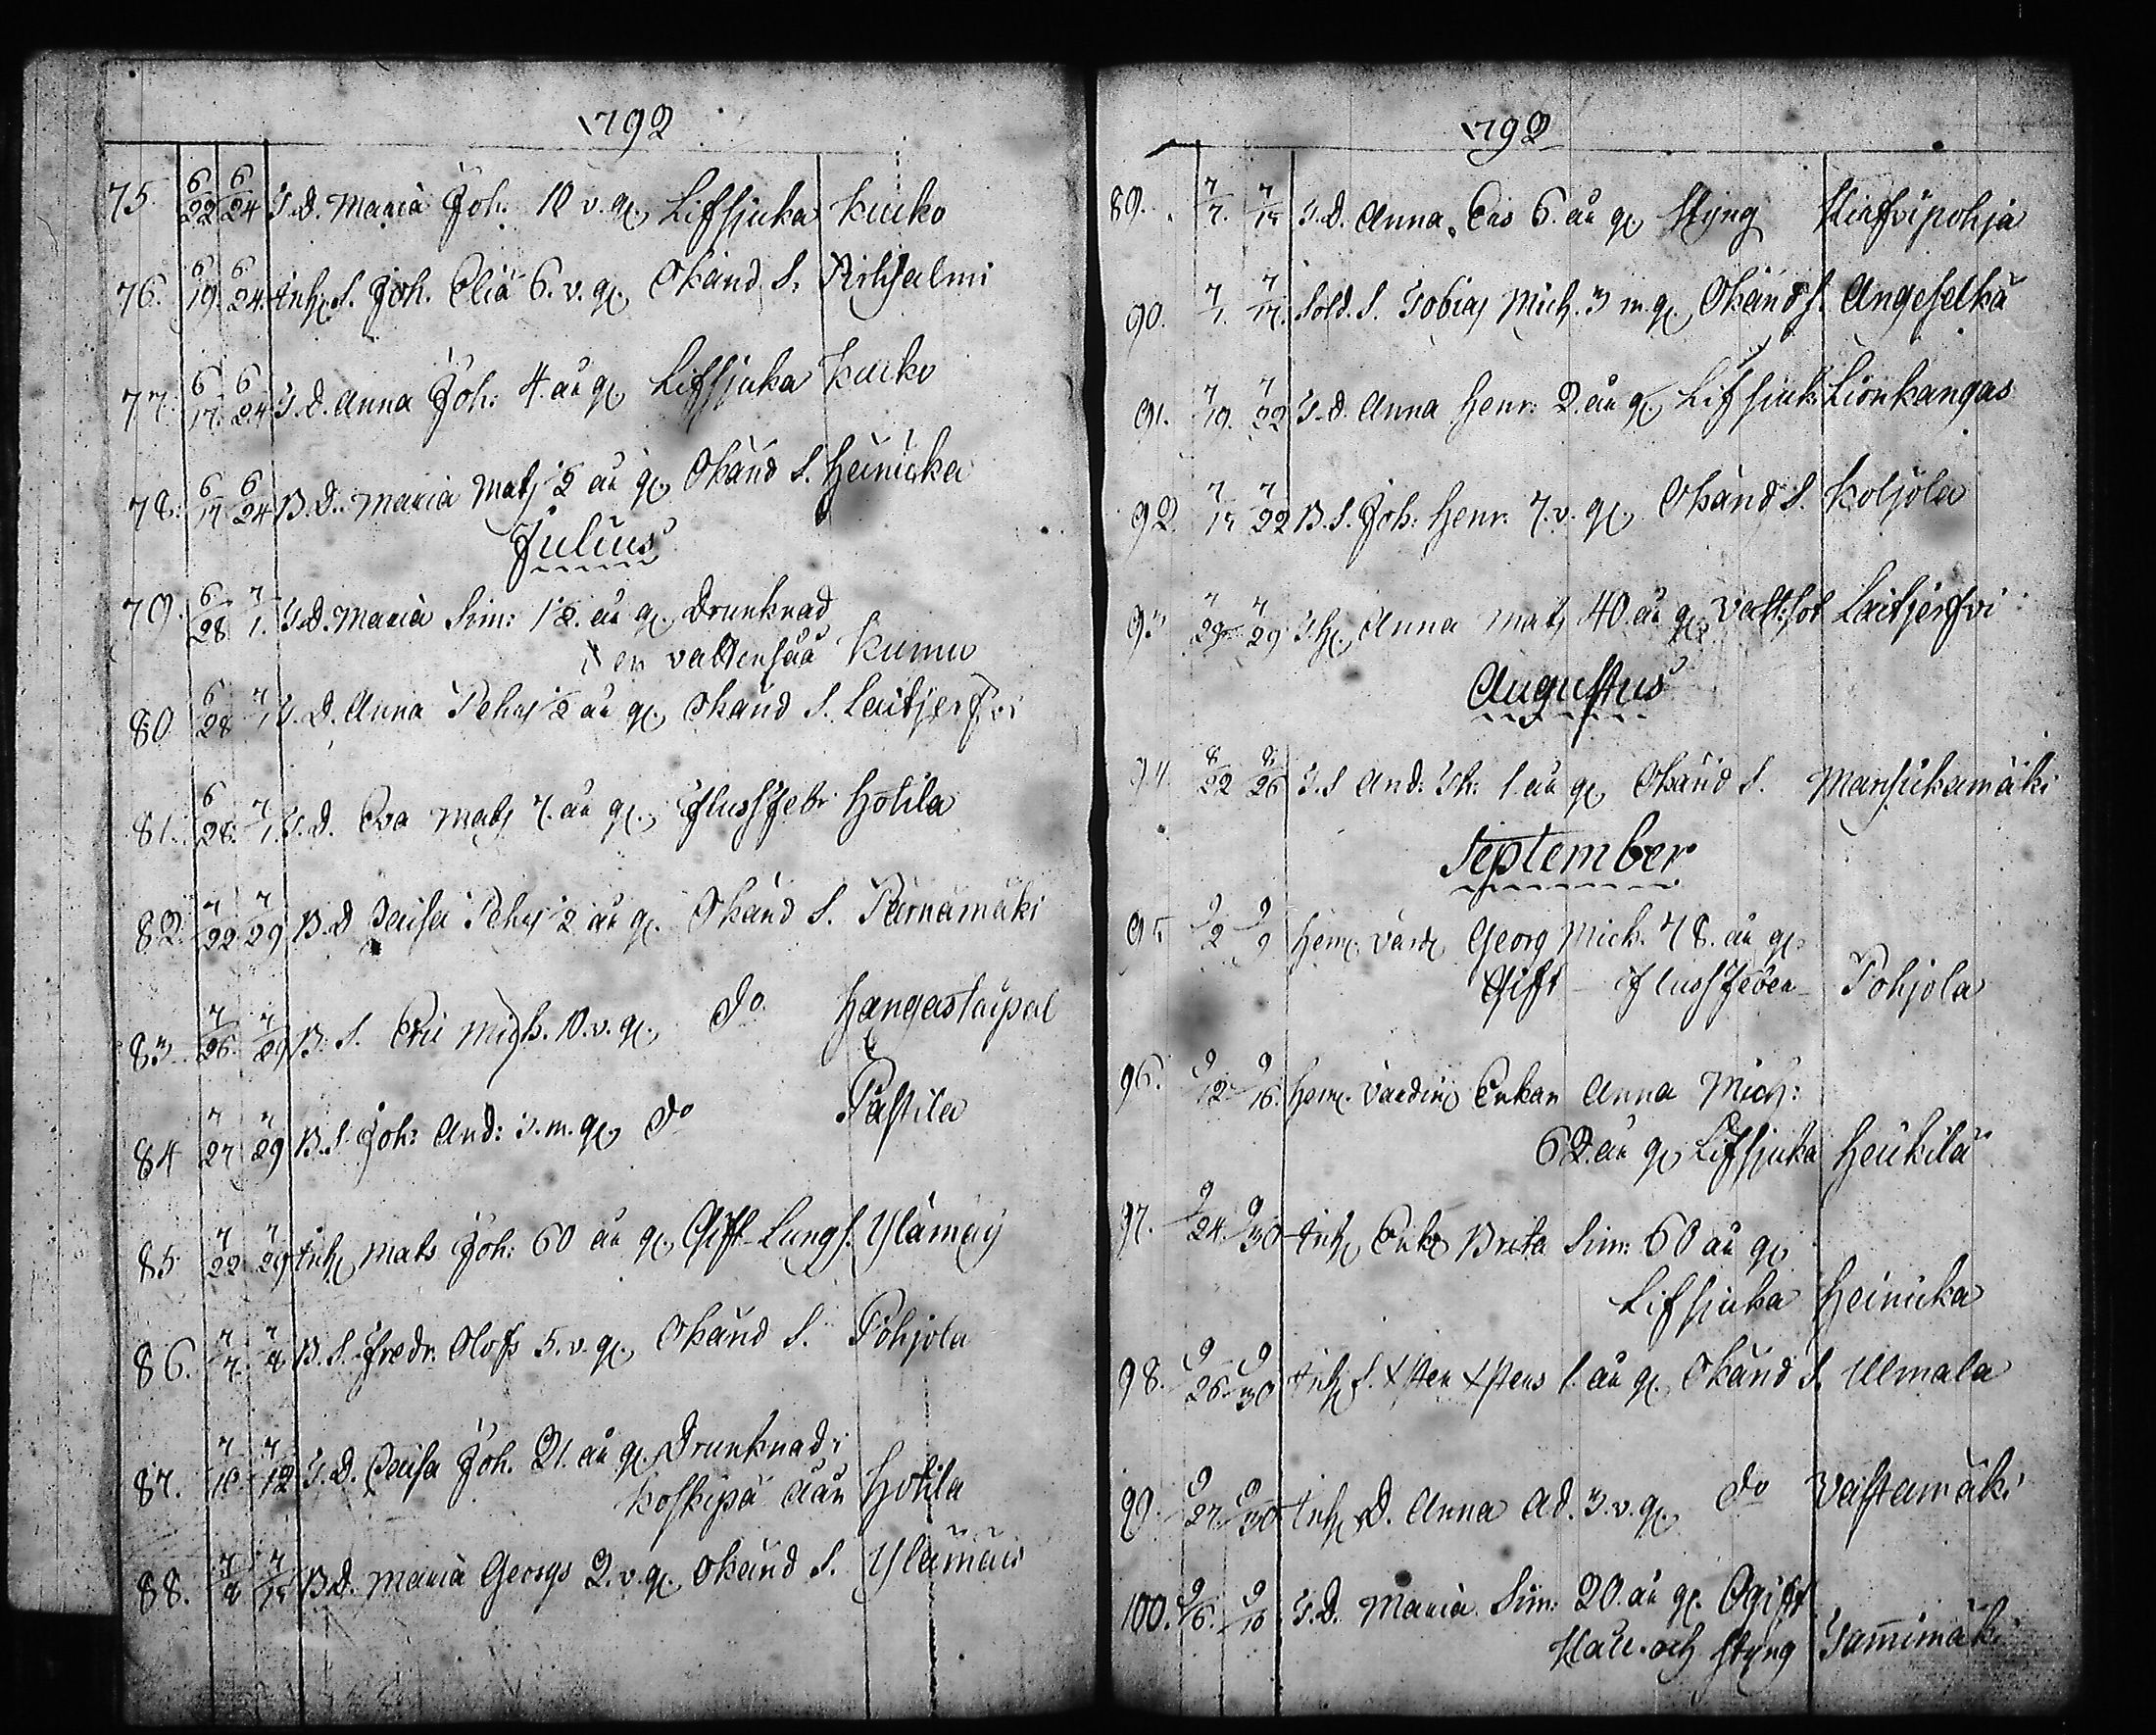 1792
75. 6/22 6/24 T.D. Maria Joh. 10 v. g. Lifsjuka Kuiko
76. 6/19. 6/24. Inh. S. Joh. Eliæ 6. v. g. Okänd S. Rihjalmi
77. 6/17. 6/24 T.D. Anna Joh: 4. år g. Lifsjuka Kuiko
78. 6/17 6/24 B.D. Maria Mats ½ år g. Okänd S. Heinicka
Julius
79. 6/28 7/1. T.D. Maria Sim: 1½. år g. Drunknad
i en vattenså Kumu
80 6/28 7/1 T.D. Anna Pehrs ½ år g. Okänd S. Laitjerfvi
81. 6/28. 7/1. T.D. Eva Mats 7. år g. flussfebr Hotila
82. 7/22 7/29 B.D Caisa Pehrs ½ år g. Okänd S. Pärnämäki
83. 7/26. 7/29 B. S. Eric Mich. 10. v. g. do Hangastaipal
84 7/27 7/29 B.S. Joh: And: 3. m. g. do Pastila
85 7/22 7/29 Inh. Mats Joh: 60 år g. Gift Lungs. Ylämay
86. 7/7. 7/8 B. S. Fredr. Olofs 5. v. g. Okänd S. Pohjola
87. 7/10. 7/12 T.D. Caisa Joh. 21. år g. Drunknad i
Koskipä åån Hotila
88. 7/8 7/15 B.D. Maria Georgs 2. v. g. Okänd S. Ylämais
1792
89. 7/7. 7/15 T.D. Anna Ers 6. år g. Styng Kiafvipohja
90. 7/1. 7/15. Sold. S. Tobias Mich. 3 m. g. Okänd S. Angeselkä
91. 7/19. 7/22 T.D. Anna Henr: 2. år g. Lifsjuk: Lionkangas
92. 7/15 7/22 B.S. Joh: Henr. 7. v. g. Okänd S. Koljola
93 7/25 7/29 T.H. Anna Mats 40. år g. Vatt:sot Laitjerfvi
Augustus
94. 8/22 8/26 T.S And: Th: 1. år g. Okänd S. Mansickamäki
September
95 9/2 9/9 Hem. värd. Georg Mich. 78. år g.
Gift flussfeber Pohjola
96. 9/12 9/16. Hem. värdin. Enkan Anna Mich:
62. år g. Lifsjuka Heikilä
97. 9/24. 9/30 Inh. Enk. Brita Sim: 60 år g.
Lifsjuka Heinicka
98. 9/26 9/30 Inh. S. Xsten Xstens 1. år g. Okänd S. Ulmala
99. 9/27 9/30 Inh. D. Anna Ad. 3. v. g. do Vastamäki
100. 9/6. 9/16 T.D. Maria Sim: 20. år g. Ogift
Håll. och Styng Tam̅imäki